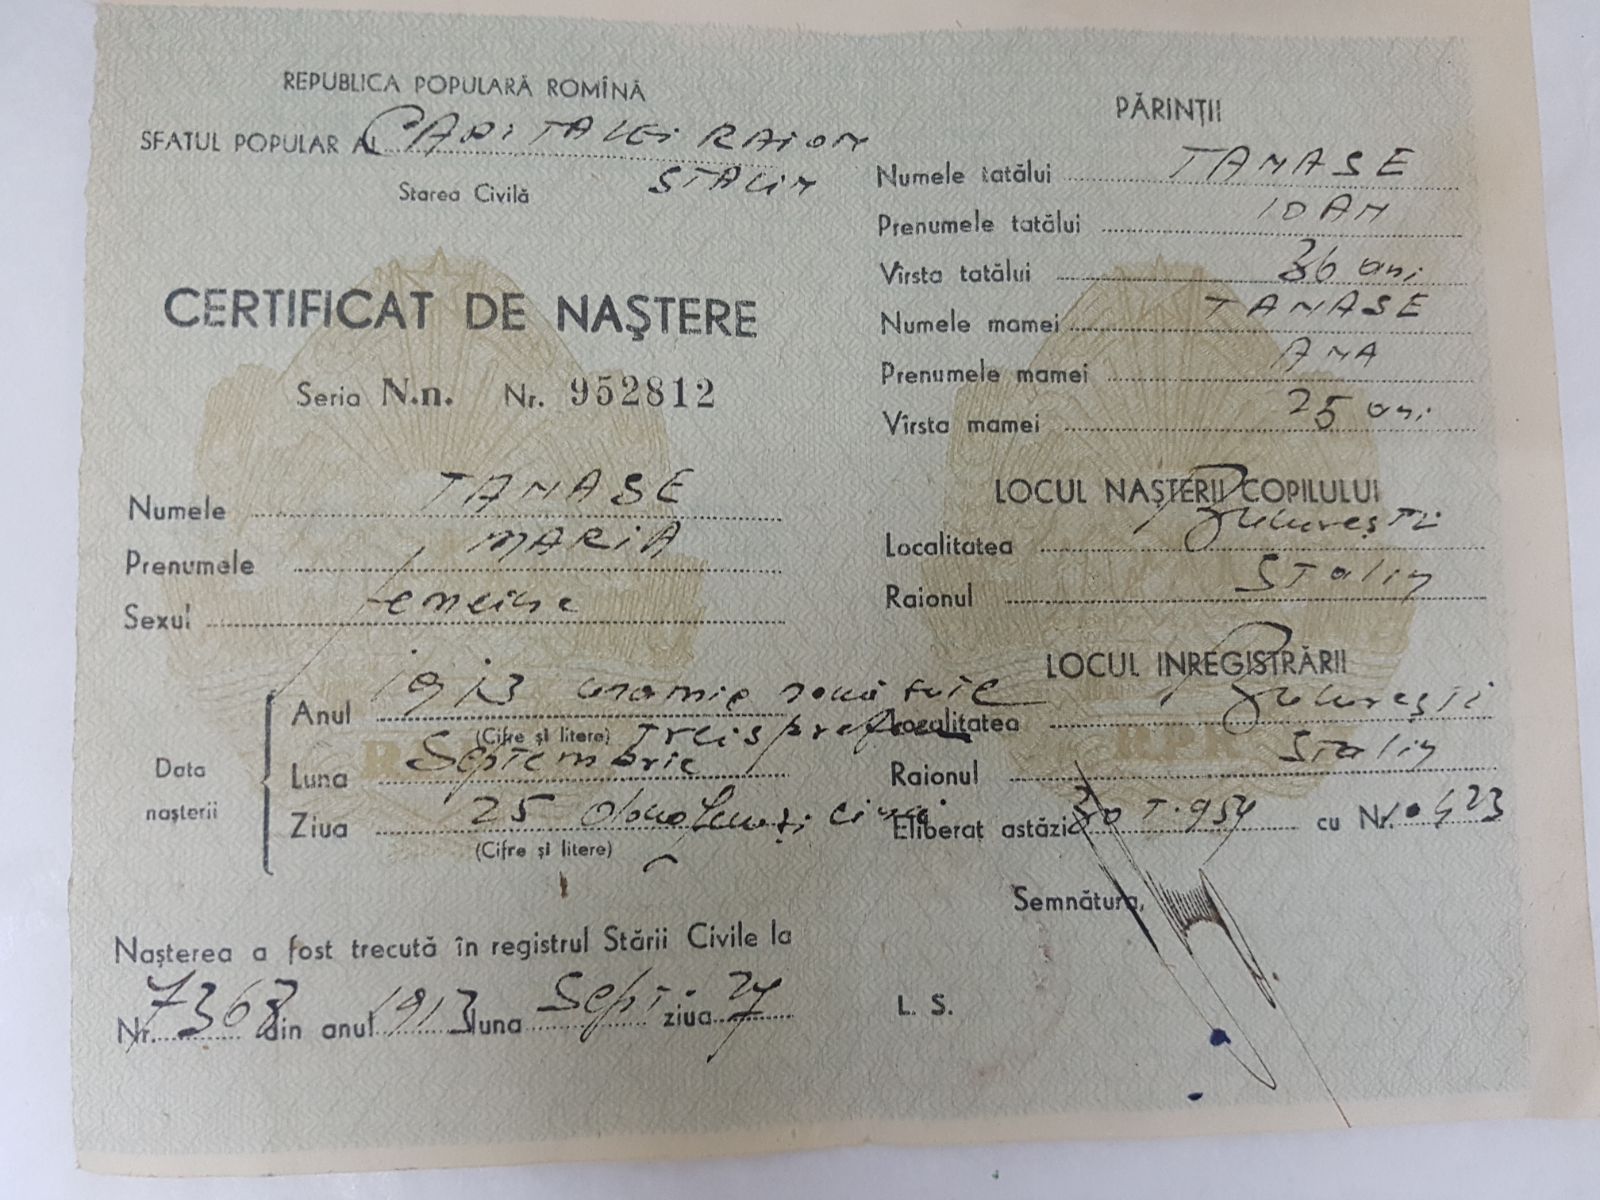 REPUBLICA POPULARĂ ROMÎNĂ
SFATUL POPULAR AL CAPITALEI RAION
STALIN
Starea Civilă
CERTIFICAT DE NAȘTERE
Seria N.n. Nr. 952812
Numele TANASE
Prenumele MARIA
Sexul femeiesc
Data nașterii
Anul 1913 una mie nouă sute
(Cifre și litere) treisprezece
Luna Septembrie
Ziua 25 douăzeci și cinci
(Cifre și litere)
Nașterea a fost trecută în registrul Stării Civile la
Nr. 7368 din anul 1913 luna Sept. ziua 27
PĂRINȚII
Numele tatălui TANASE
Prenumele tatălui IOAN
Vîrsta tatălui 36 ani
Numele mamei TANASE
Prenumele mamei ANA
Vîrsta mamei 25 ani
LOCUL NAȘTERII COPILULUI
Localitatea București
Raionul Stalin
LOCUL INREGISTRĂRII
Localitatea București
Raionul Stalin
Eliberat astăzi 30 I. 954 cu Nr.
Semnătura,
L. S.
R.P.R.